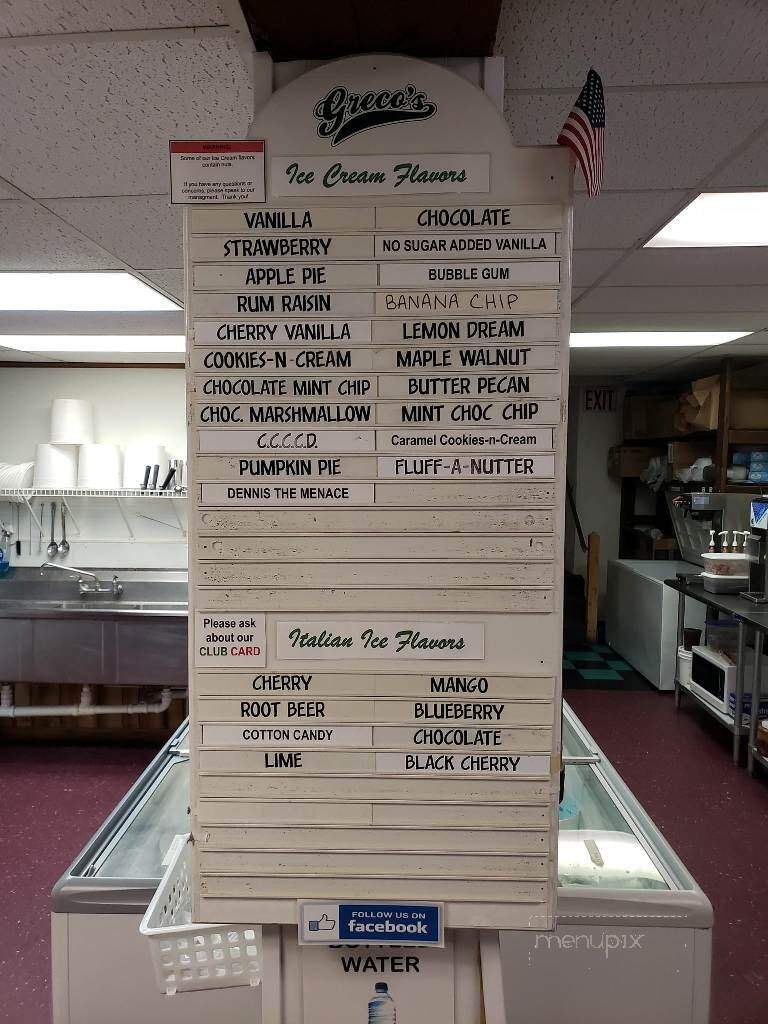 Greco's
WARNING
Some of our Ice Cream flavors
contain nuts.
If you have any questions or
concerns, please speak to our
managment. Thank you!
Ice Cream Flavors
VANILLA CHOCOLATE
STRAWBERRY NO SUGAR ADDED VANILLA
APPLE PIE BUBBLE GUM
RUM RAISIN BANANA CHIP
CHERRY VANILLA LEMON DREAM
COOKIES-N-CREAM MAPLE WALNUT
CHOCOLATE MINT CHIP BUTTER PECAN
CHOC. MARSHMALLOW MINT CHOC CHIP
C.C.C.C.D. Caramel Cookies-n-Cream
PUMPKIN PIE FLUFF-A-NUTTER
DENNIS THE MENACE
EXIT
Please ask
about our
CLUB CARD
Italian Ice Flavors
CHERRY MANGO
ROOT BEER BLUEBERRY
COTTON CANDY CHOCOLATE
LIME BLACK CHERRY
FOLLOW US ON
facebook
BOTTLED
WATER
menupix